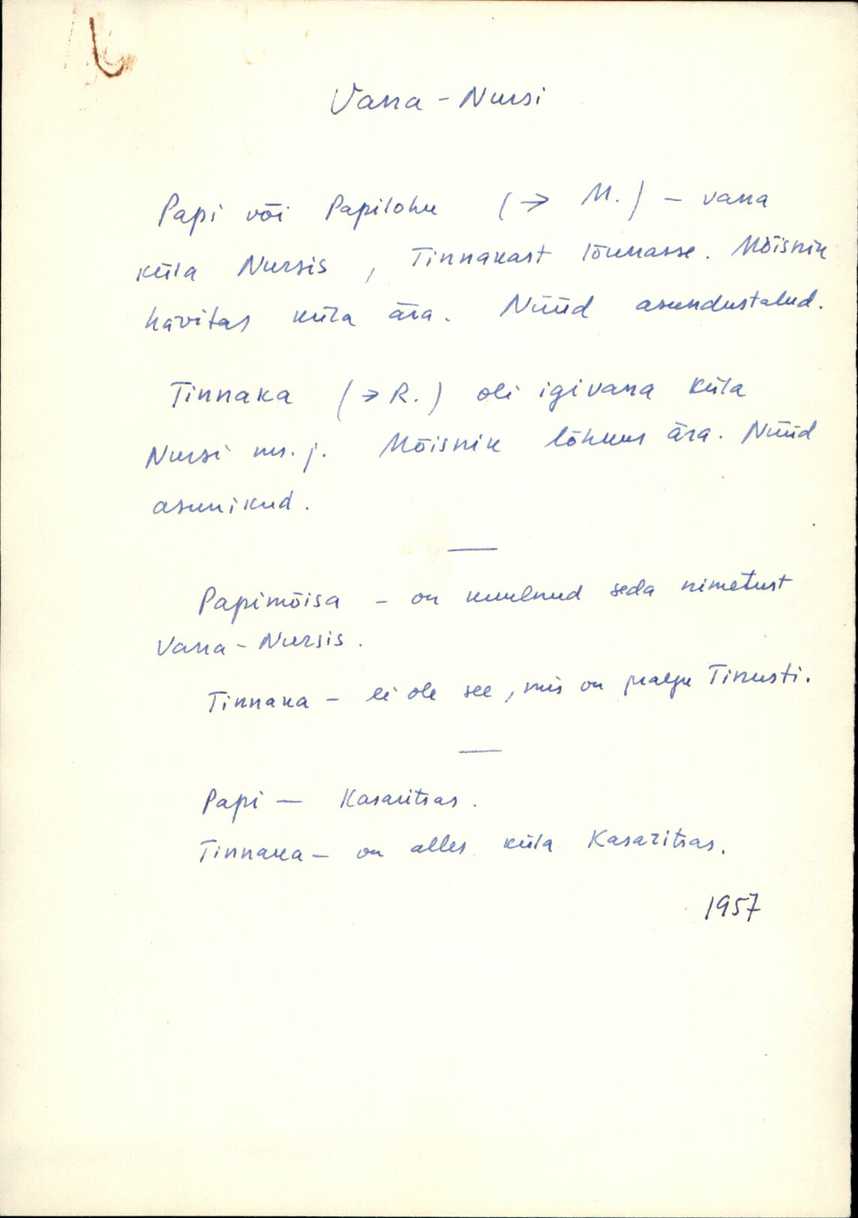 Vana-Nursi
Papi või Papilohu (→ M.) – vana
küla Nursis, Tinnakast lõunasse. Mõisnik
hävitas küla ära. Nüüd asundustalud.
Tinnaka (→ R.) oli igivana küla
Nursi ms. j. Mõisnik lõhkus ära. Nüüd
asunikud.
Papimõisa – on kuulnud seda nimetust
Vana-Nursis.
Tinnaka – ei ole see, mis on praegu Tinusti.
Papi – Kasaritsas.
Tinnaka – on alles küla Kasaritsas.
1957